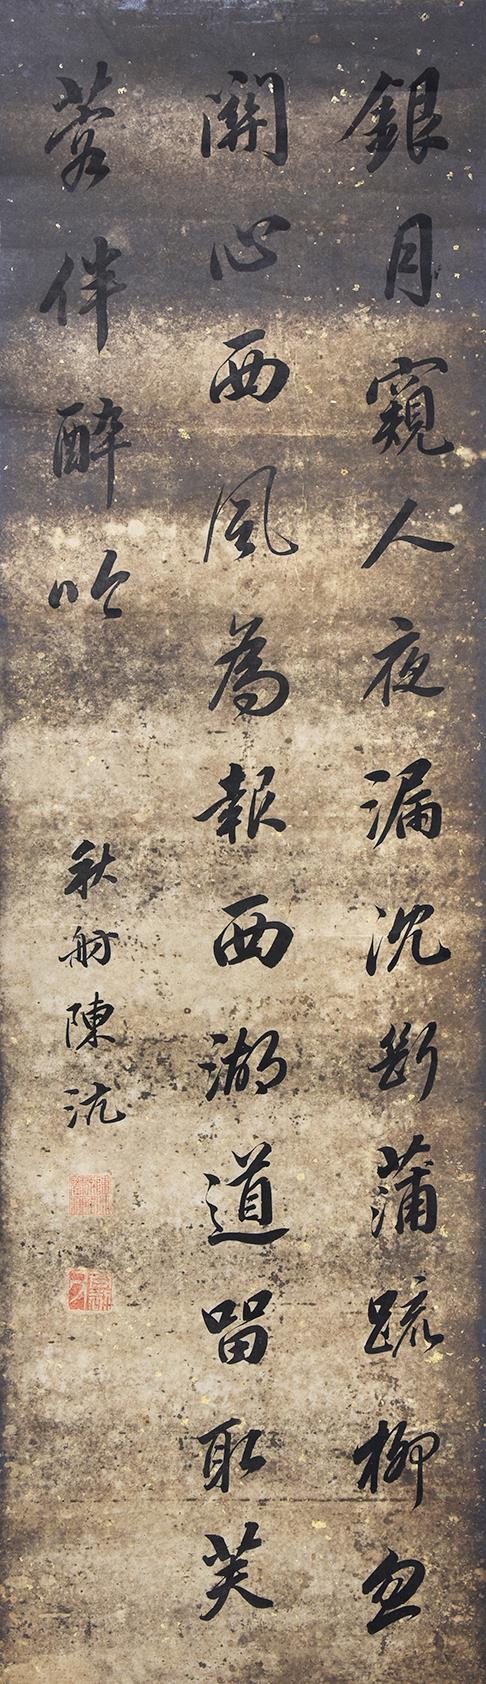 銀月窺人夜漏沈斷蒲疏柳忽
關心西風為報西湖道留取芙
蓉伴醉吟
秋舫陳沆